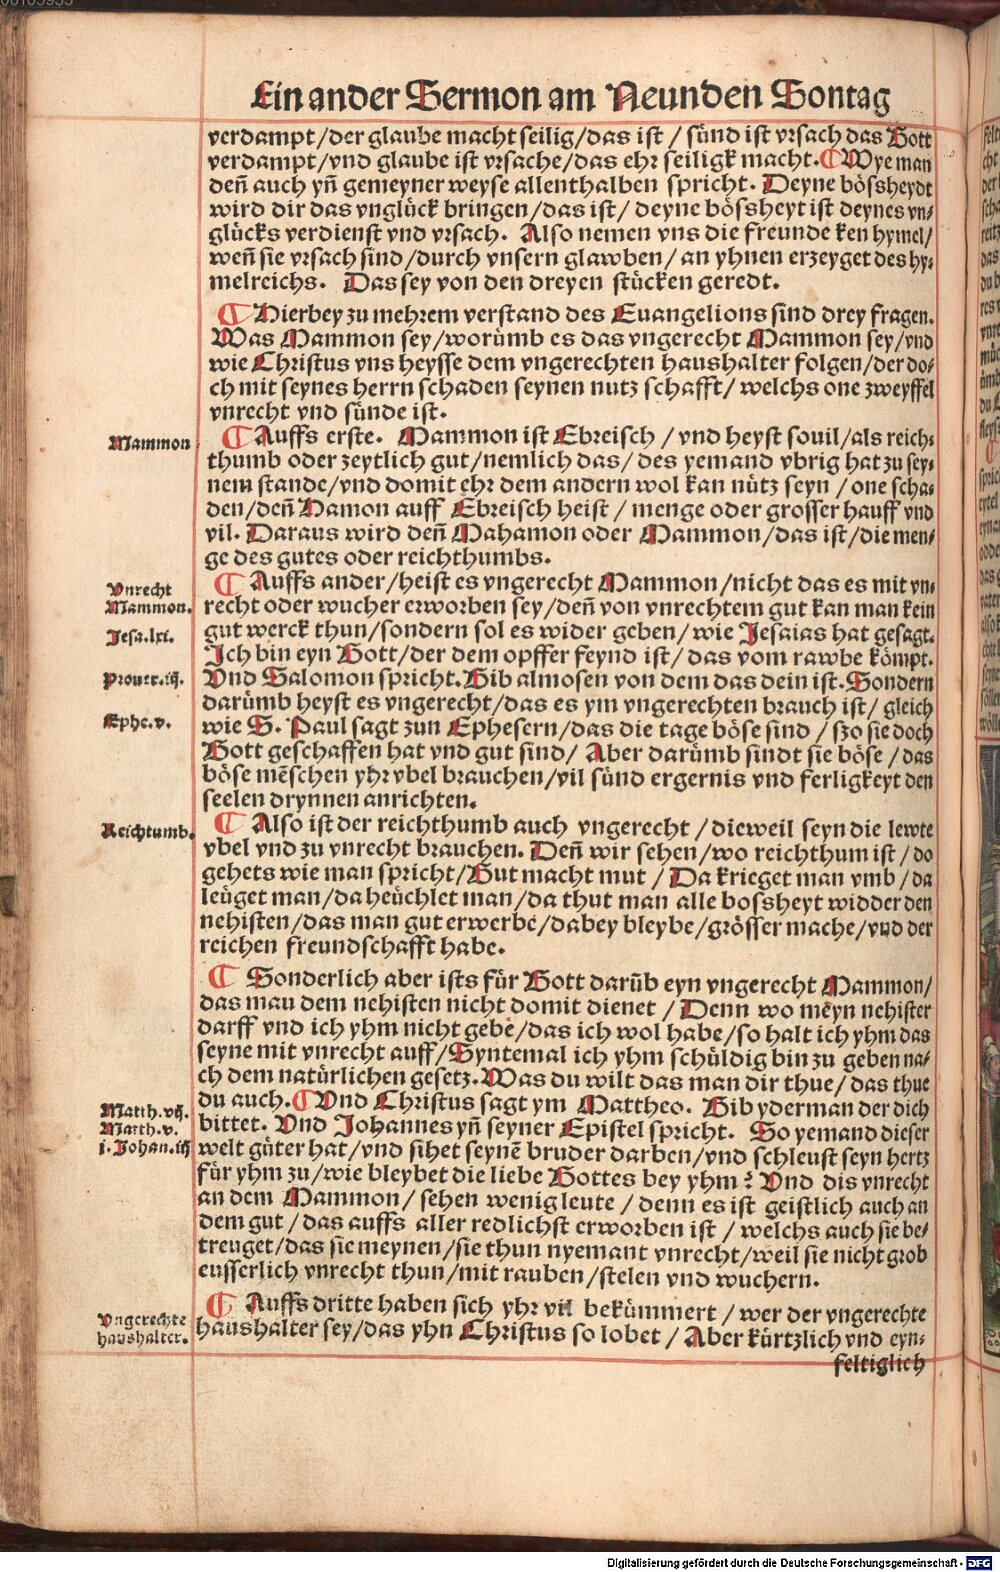 Ein ander Sermon am Neunden Sontag
verdampt/der glaube macht seilig/das ist/sünd ist vrsach das Gott
verdampt/vnd glaube ist vrsache/das ehr seiligk macht. Wye man
deñ auch yñ gemeyner weyse allenthalben spricht. Deyne bössheydt
wird dir das vnglück bringen/das ist/deyne bössheyt ist deynes vn⸗
glücks verdienst vnd vrsach. Also nemen vns die freunde ken hymel/
weñ sie vrsach sind/durch vnsern glawben/an yhnen erzeyget des hy⸗
melreichs. Das sey von den dreyen stücken geredt.
Hierbey zu mehrem verstand des Euangelions sind drey fragen.
Was Mammon sey/worümb es das vngerecht Mammon sey/vnd
wie Christus vns heysse dem vngerechten haushalter folgen/der do⸗
ch mit seynes herrn schaden seynen nutz schafft/welchs one zweyffel
vnrecht vnd sünde ist.
Mammon
Auffs erste. Mammon ist Ebreisch/vnd heyst souil/als reich⸗
thumb oder zeytlich gut/nemlich das/des yemand vbrig hat zu sey⸗
nem stande/vnd domit ehr dem andern wol kan nütz seyn/one scha⸗
den/deñ Hamon auff Ebreisch heist/menge oder grosser hauff vnd
vil. Daraus wird deñ Mahamon oder Mammon/das ist/die men⸗
ge des gutes oder reichthumbs.
Vnrecht
Mammon.
Auffs ander/heist es vngerecht Mammon/nicht das es mit vn⸗
recht oder wucher erworben sey/deñ von vnrechtem gut kan man kein
Jesa.lxi.
gut werck thun/sondern sol es wider geben/wie Jesaias hat gesagt.
Ich bin eyn Gott/der dem opffer feynd ist/das vom rawbe kömpt.
Prouer.iij.
Vnd Salomon spricht. Gib almosen von dem das dein ist. Sondern
darümb heyst es vngerecht/das es ym vngerechten brauch ist/gleich
Ephe.v.
wie S. Paul sagt zun Ephesern/das die tage böse sind/szo sie doch
Gott geschaffen hat vnd gut sind/Aber darümb sindt sie böse/das
böse mēschen yhr vbel brauchen/vil sünd ergernis vnd ferligkeyt den
seelen drynnen anrichten.
Reichtumb.
Also ist der reichthumb auch vngerecht/dieweil seyn die lewte
vbel vnd zu vnrecht brauchen. Deñ wir sehen/wo reichthum ist/do
gehets wie man spricht/Gut macht mut/Da krieget man vmb/da
leüget man/da heüchlet man/da thut man alle bossheyt widder den
nehisten/das man gut erwerbe/dabey bleybe/grösser mache/vnd der
reichen freundschafft habe.
Sonderlich aber ists für Gott darūb eyn vngerecht Mammon/
das man dem nehisten nicht domit dienet/Denn wo meyn nehister
darff vnd ich yhm nicht gebe/das ich wol habe/so halt ich yhm das
seyne mit vnrecht auff/Syntemal ich yhm schüldig bin zu geben na⸗
ch dem natürlichen gesetz. Was du wilt das man dir thue/das thue
Matth.vij.
du auch. Vnd Christus sagt ym Mattheo. Gib yderman der dich
Matth.v.
bittet. Vnd Johannes yñ seyner Epistel spricht. So yemand dieser
i.Johan.iij
welt güter hat/vnd sihet seynē bruder darben/vnd schleust seyn hertz
für yhm zu/wie bleybet die liebe Gottes bey yhm? Vnd dis vnrecht
an dem Mammon/sehen wenig leute/denn es ist geistlich auch an
dem gut/das auffs aller redlichst erworben ist/welchs auch sie be⸗
treuget/das sie meynen/sie thun nyemant vnrecht/weil sie nicht grob
eusserlich vnrecht thun/mit rauben/stelen vnd wuchern.
Vngerechte
haushalter.
Auffs dritte haben sich yhr vil bekümmert/wer der vngerechte
haushalter sey/das yhn Christus so lobet/Aber kürtzlich vnd eyn⸗
feltiglich
Digitalisierung gefördert durch die Deutsche Forschungsgemeinschaft - DFG